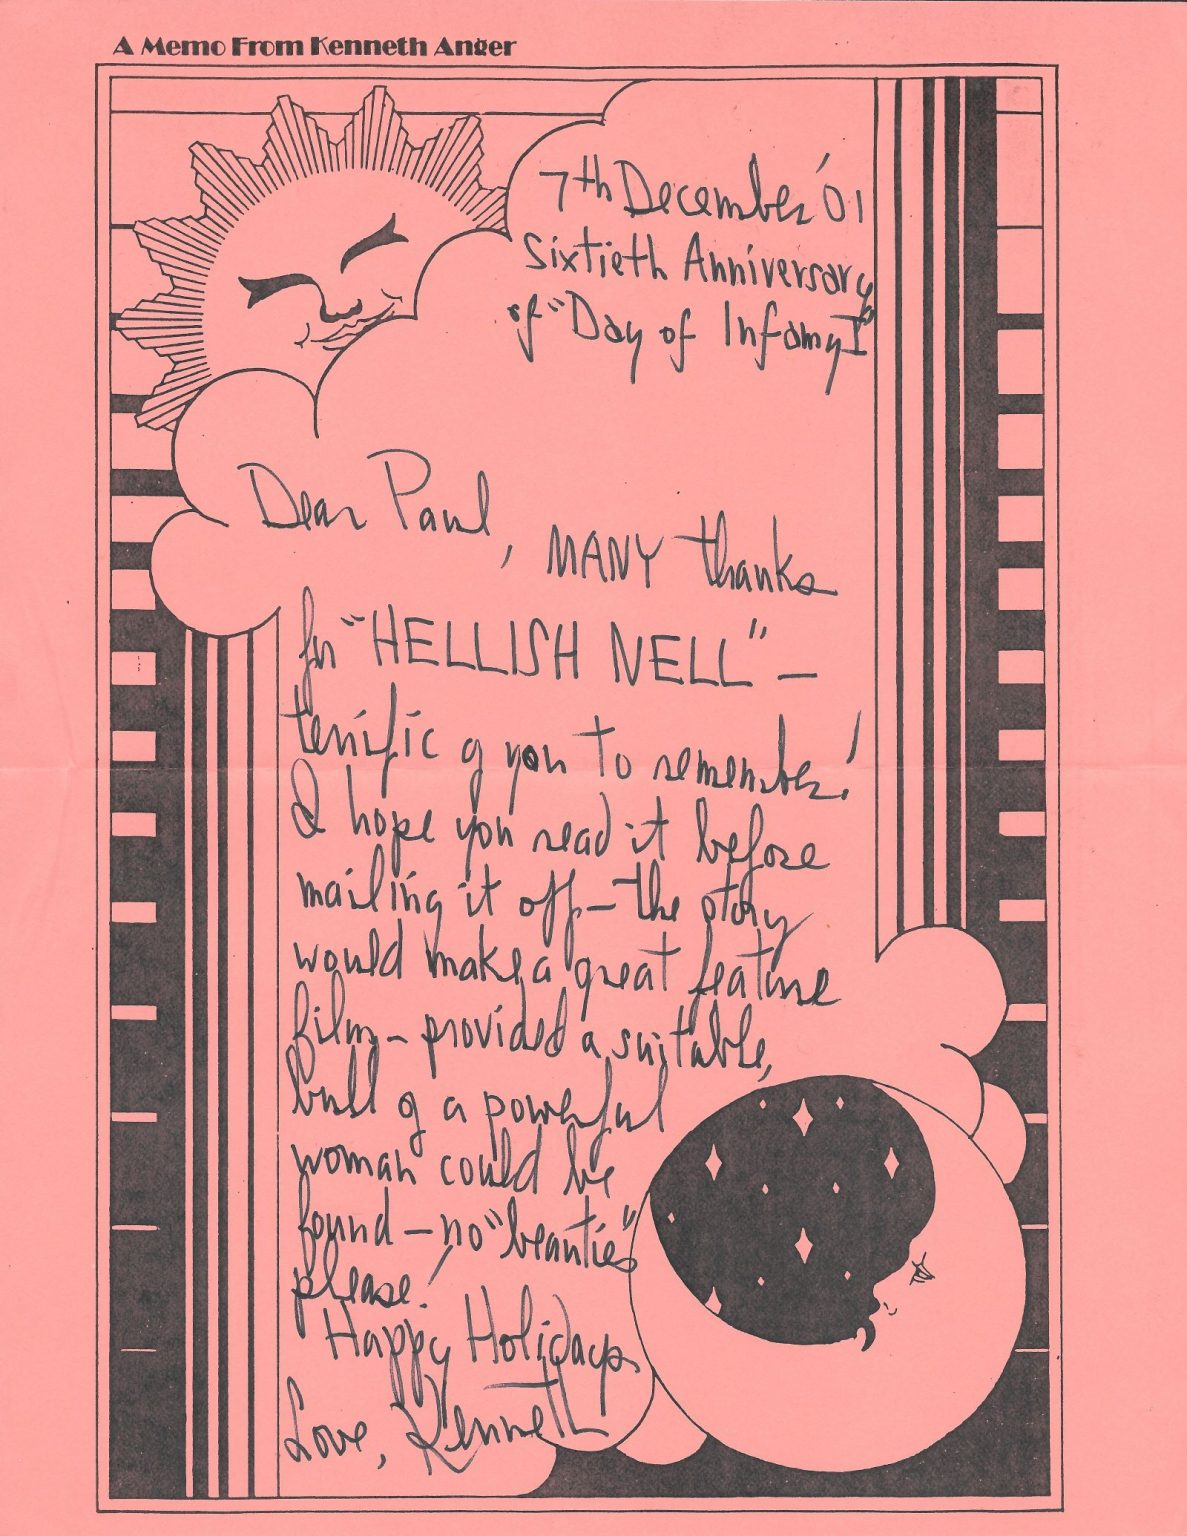 A Memo From Kenneth Anger
7th December '01
Sixtieth Anniversary
of "Day of Infamy I"
Dear Paul,
MANY thanks
for "HELLISH NELL" —
terrific of you to remember!
I hope you read it before
mailing it off — the story
would make a great feature
film — provided a suitable,
bull of a powerful
woman could be
found — no "beauties"
please!
Happy Holidays
Love, Kenneth